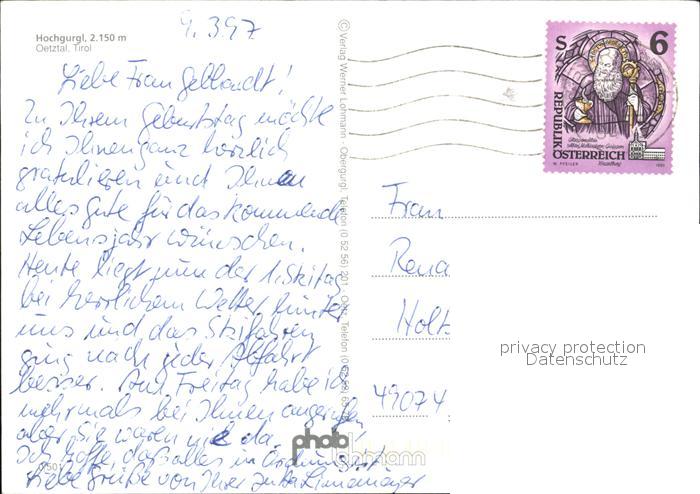 9.3.97
Hochgurgl, 2.150 m
Oetztal, Tirol
Liebe Frau Gebhardt!
Zu Ihrem Geburtstag möchte
ich Ihnen ganz herzlich
gratulieren und Ihnen
alles gute für das kommende
Lebensjahr wünschen.
Heute liegt nun der 1. Skitag
bei herrlichem Wetter hinter
uns und das Skifahren
ging nach jeder Abfahrt
besser. Am Freitag habe ich
mehrmals bei Ihnen angerufen
aber Sie waren nie da.
Ich hoffe, daß alles in Ordnung ist.
Liebe Grüße von Ihrer Jutta
© Verlag Werner Lohmann · Obergurgl · Telefon (0 52 56) 201
S 6
REPUBLIK
ÖSTERREICH
Frau
Rena
Holt
49074
privacy protection
Datenschutz
photo
lohmann